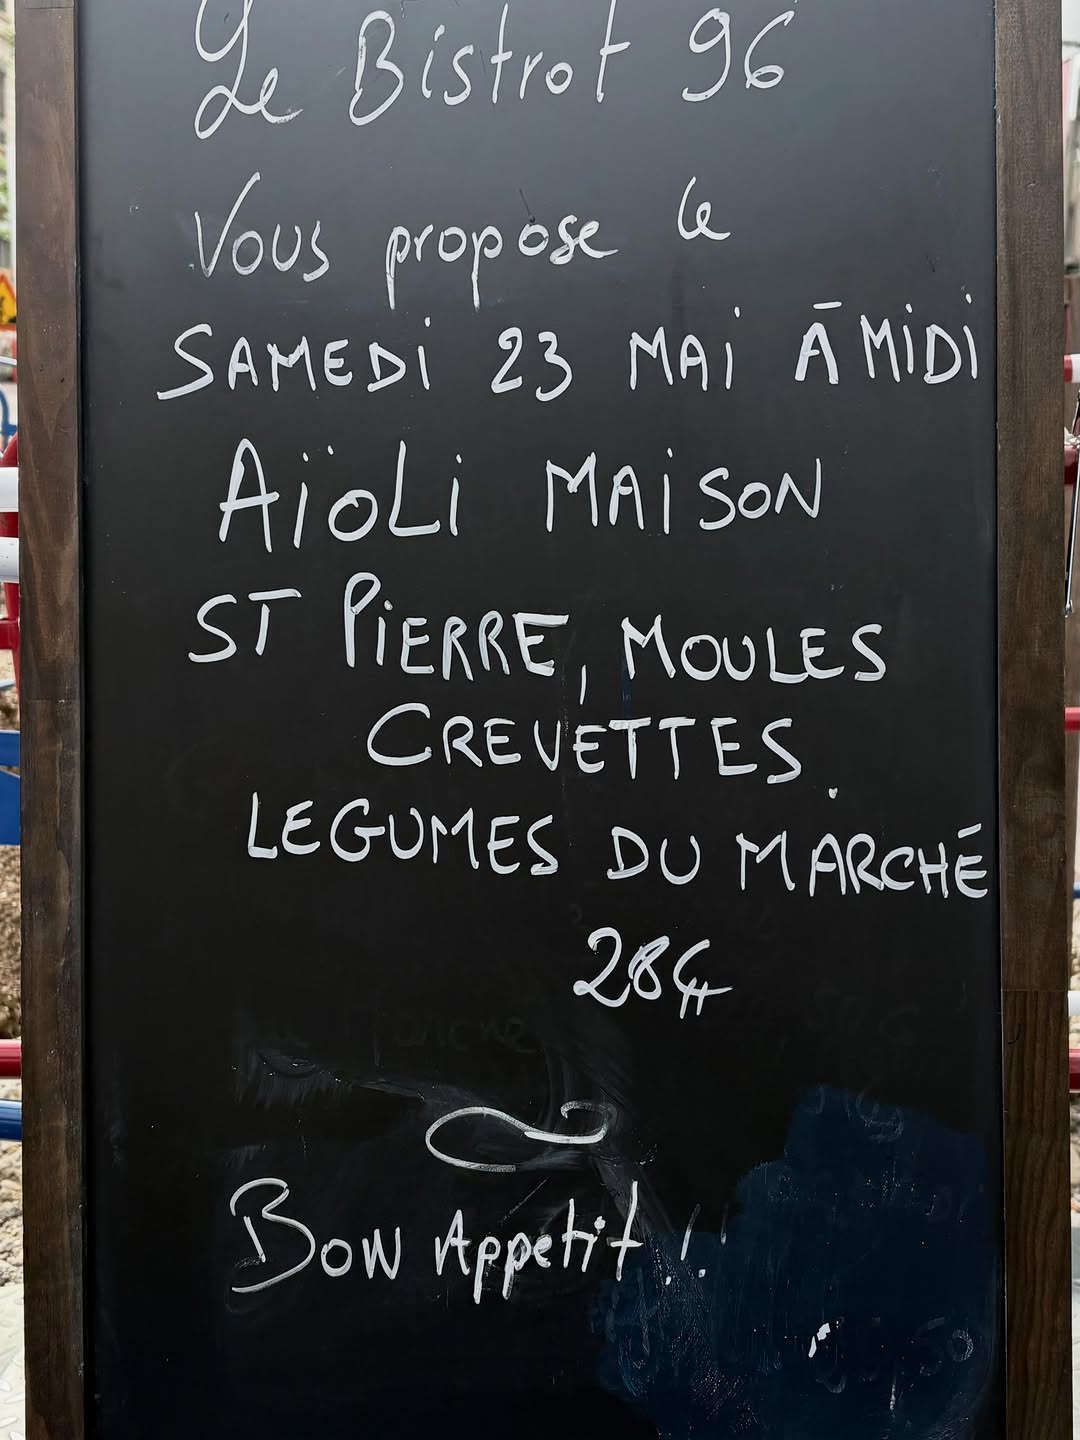 Le Bistrot 96
Vous propose le
SAMEDI 23 MAI À MIDI
AÏOLI MAISON
ST PIERRE, MOULES
CREVETTES.
LEGUMES DU MARCHÉ
28€
Bon Appétit !!